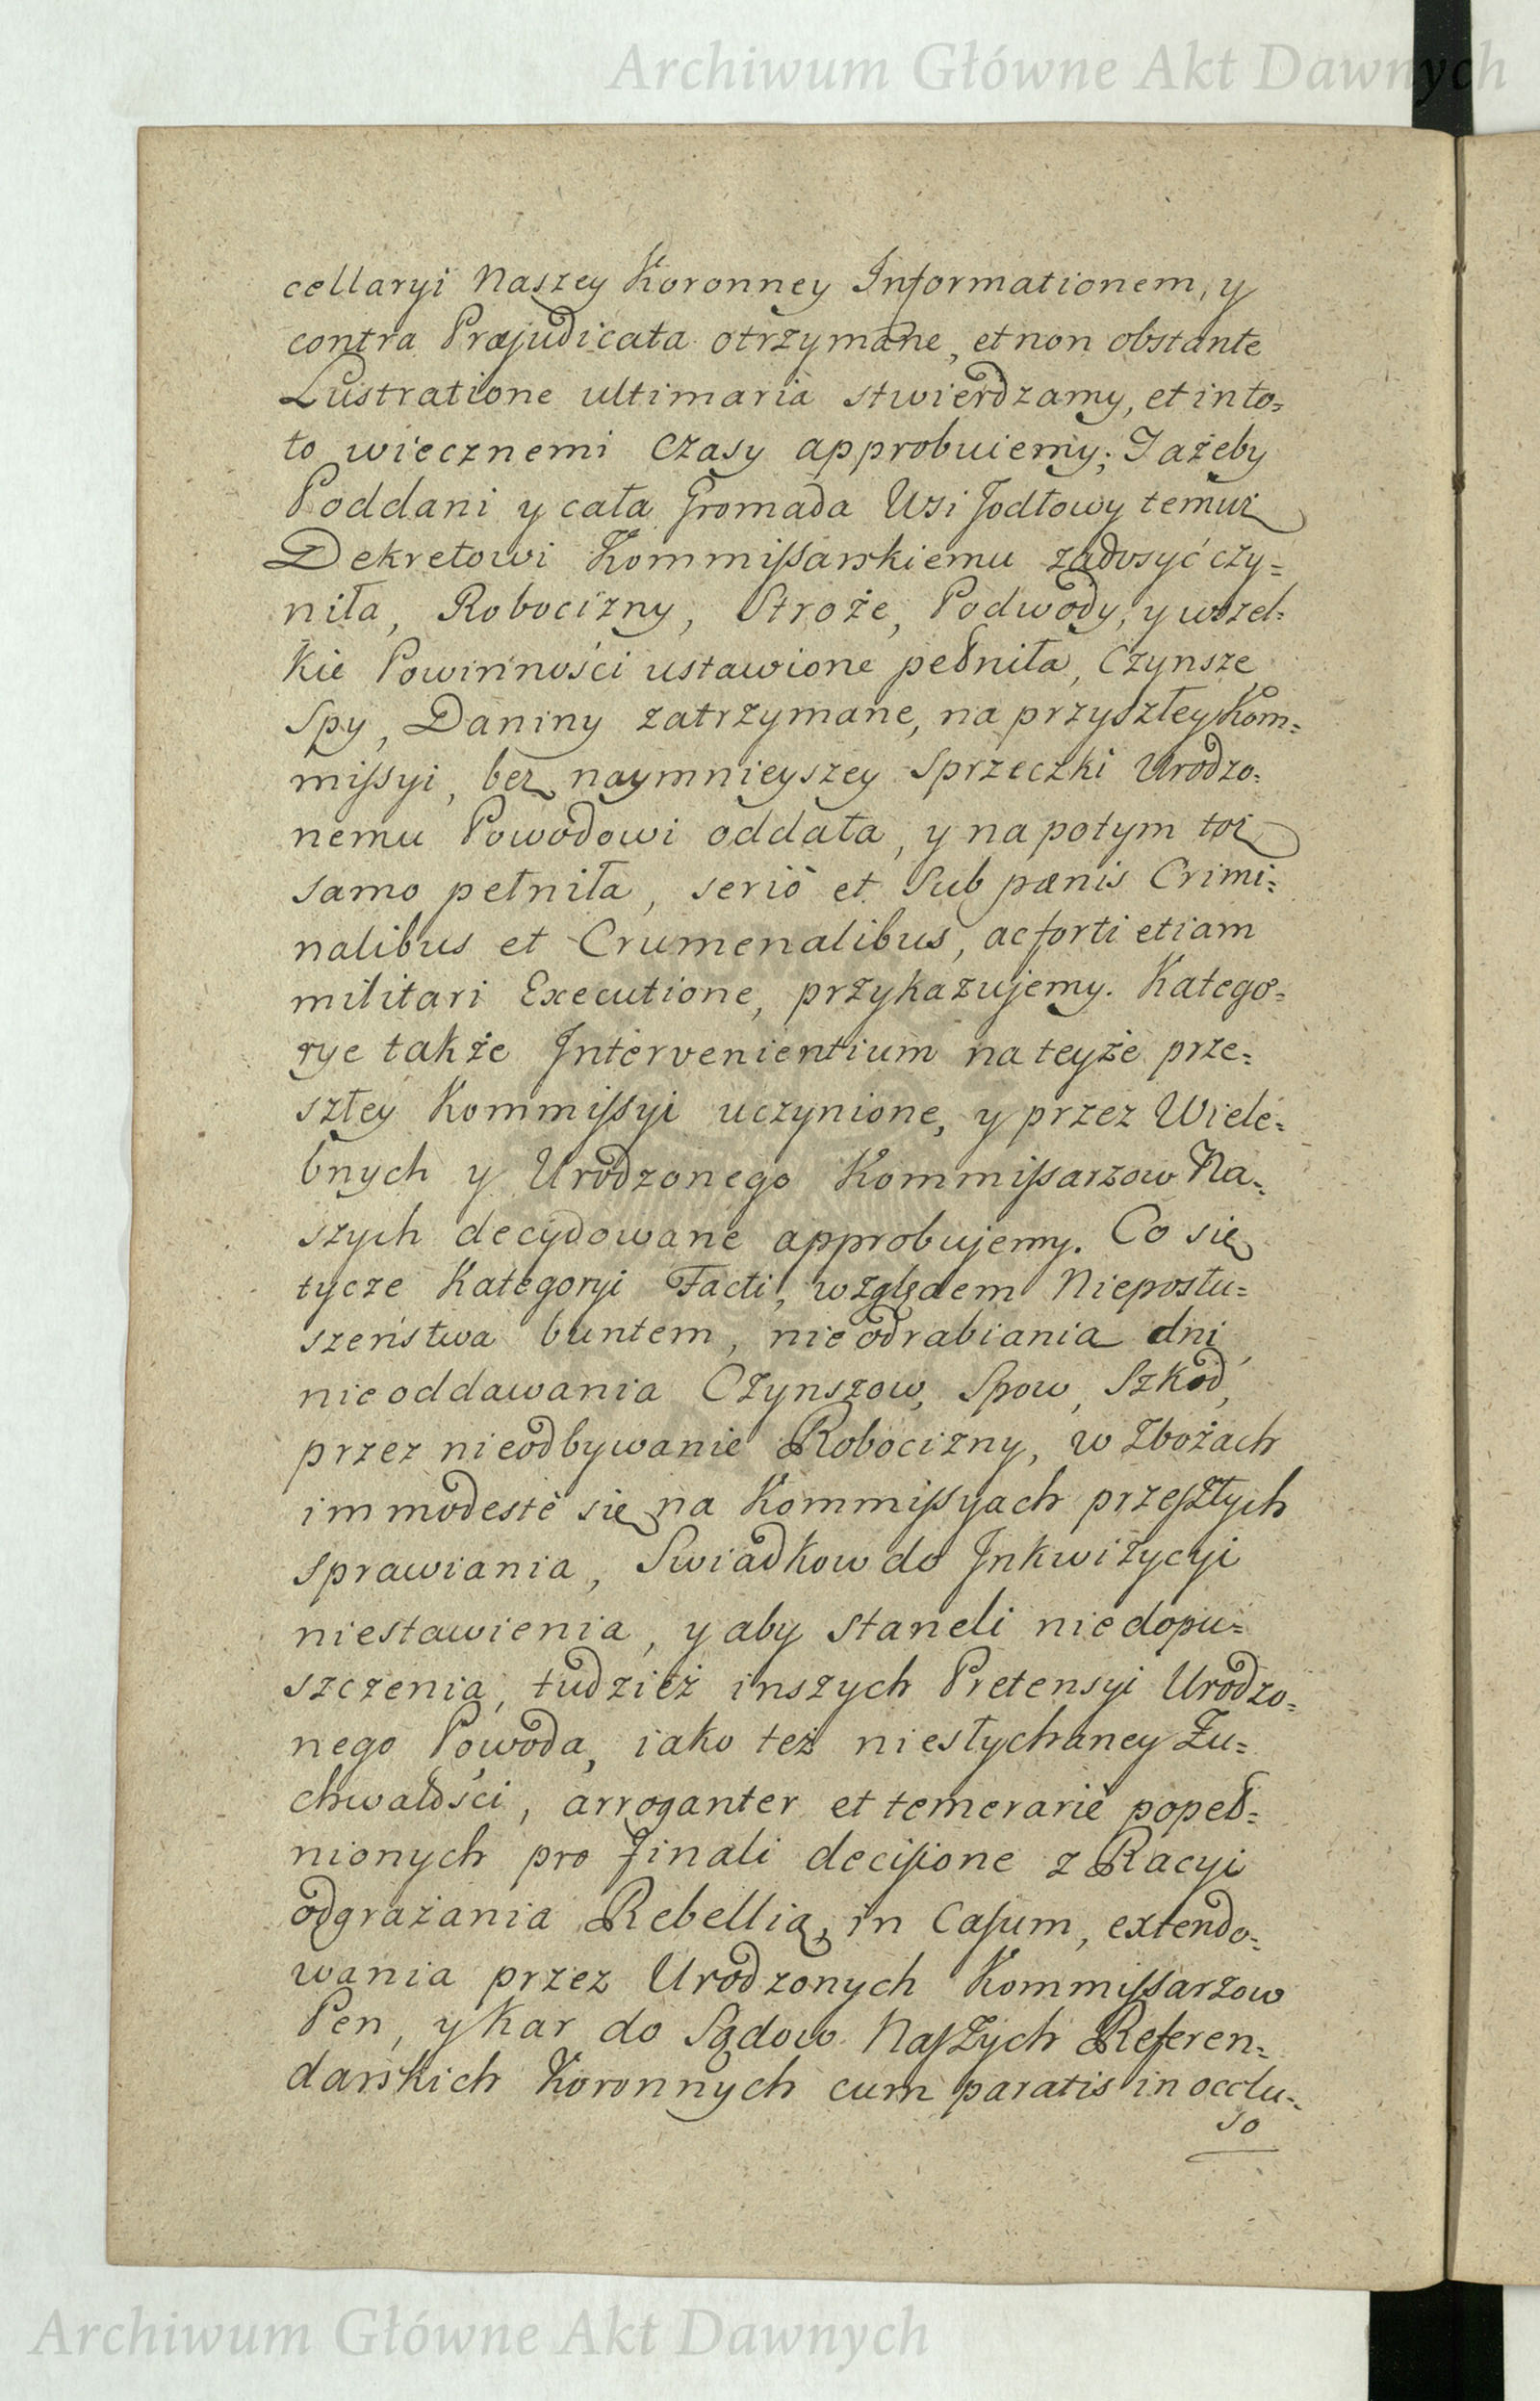 Archiwum Główne Akt Dawnych
cellaryi Naszey Koronney Informationem, y
contra Præjudicata otrzymane, et non obstante
Lustratione ultimaria stwierdzamy, et in to=
to wiecznemi Czasy approbuiemy; I ażeby
Poddani y cała Gromada Wsi Jodłowy temuż
Dekretowi Kommißarskiemu zadosyć czy=
niła, Robocizny, Stroże, Podwody, y wszel=
kie Powinności ustawione pełniła, Czynsze,
Spy, Daniny zatrzymane, na przyszłey Kom=
mißyi, bez naymnieyszey Sprzeczki Urodzo=
nemu Powodowi oddała, y na potym toż
samo pełniła, seriò et sub pænis Crimi=
nalibus et Crumenalibus, ac forti etiam
militari Executione, przykazujemy. Katego=
rye także Intervenientium na teyże prze=
szłey Kommißyi uczynione, y przez Wiele=
bnych y Urodzonego Kommißarzow Na=
szych decydowane approbujemy. Co się
tycze Kategoryi Facti, względem Nieposłu=
szeństwa buntem, nieodrabiania dni,
nieoddawania Czynszow, Spow, Szkod,
przez nieodbywanie Robocizny, w Zbożach
immodestè się na Kommißyach przeszłych
sprawiania, Swiadkow do Inkwizycyi
niestawienia, y aby staneli niedopu=
szczenia, tudzież inszych Pretensyi Urodzo=
nego Powoda, iako też niesłychaney Zu=
chwałości, arroganter et temerariè popeł=
nionych pro finali decisione z Racyi
odgrażania Rebellią, in Casum, extendo=
wania przez Urodzonych Kommißarzow
Pen, y Kar do Sądow Naszych Referen=
darskich Koronnych cum paratis in occlu=
so
Archiwum Główne Akt Dawnych